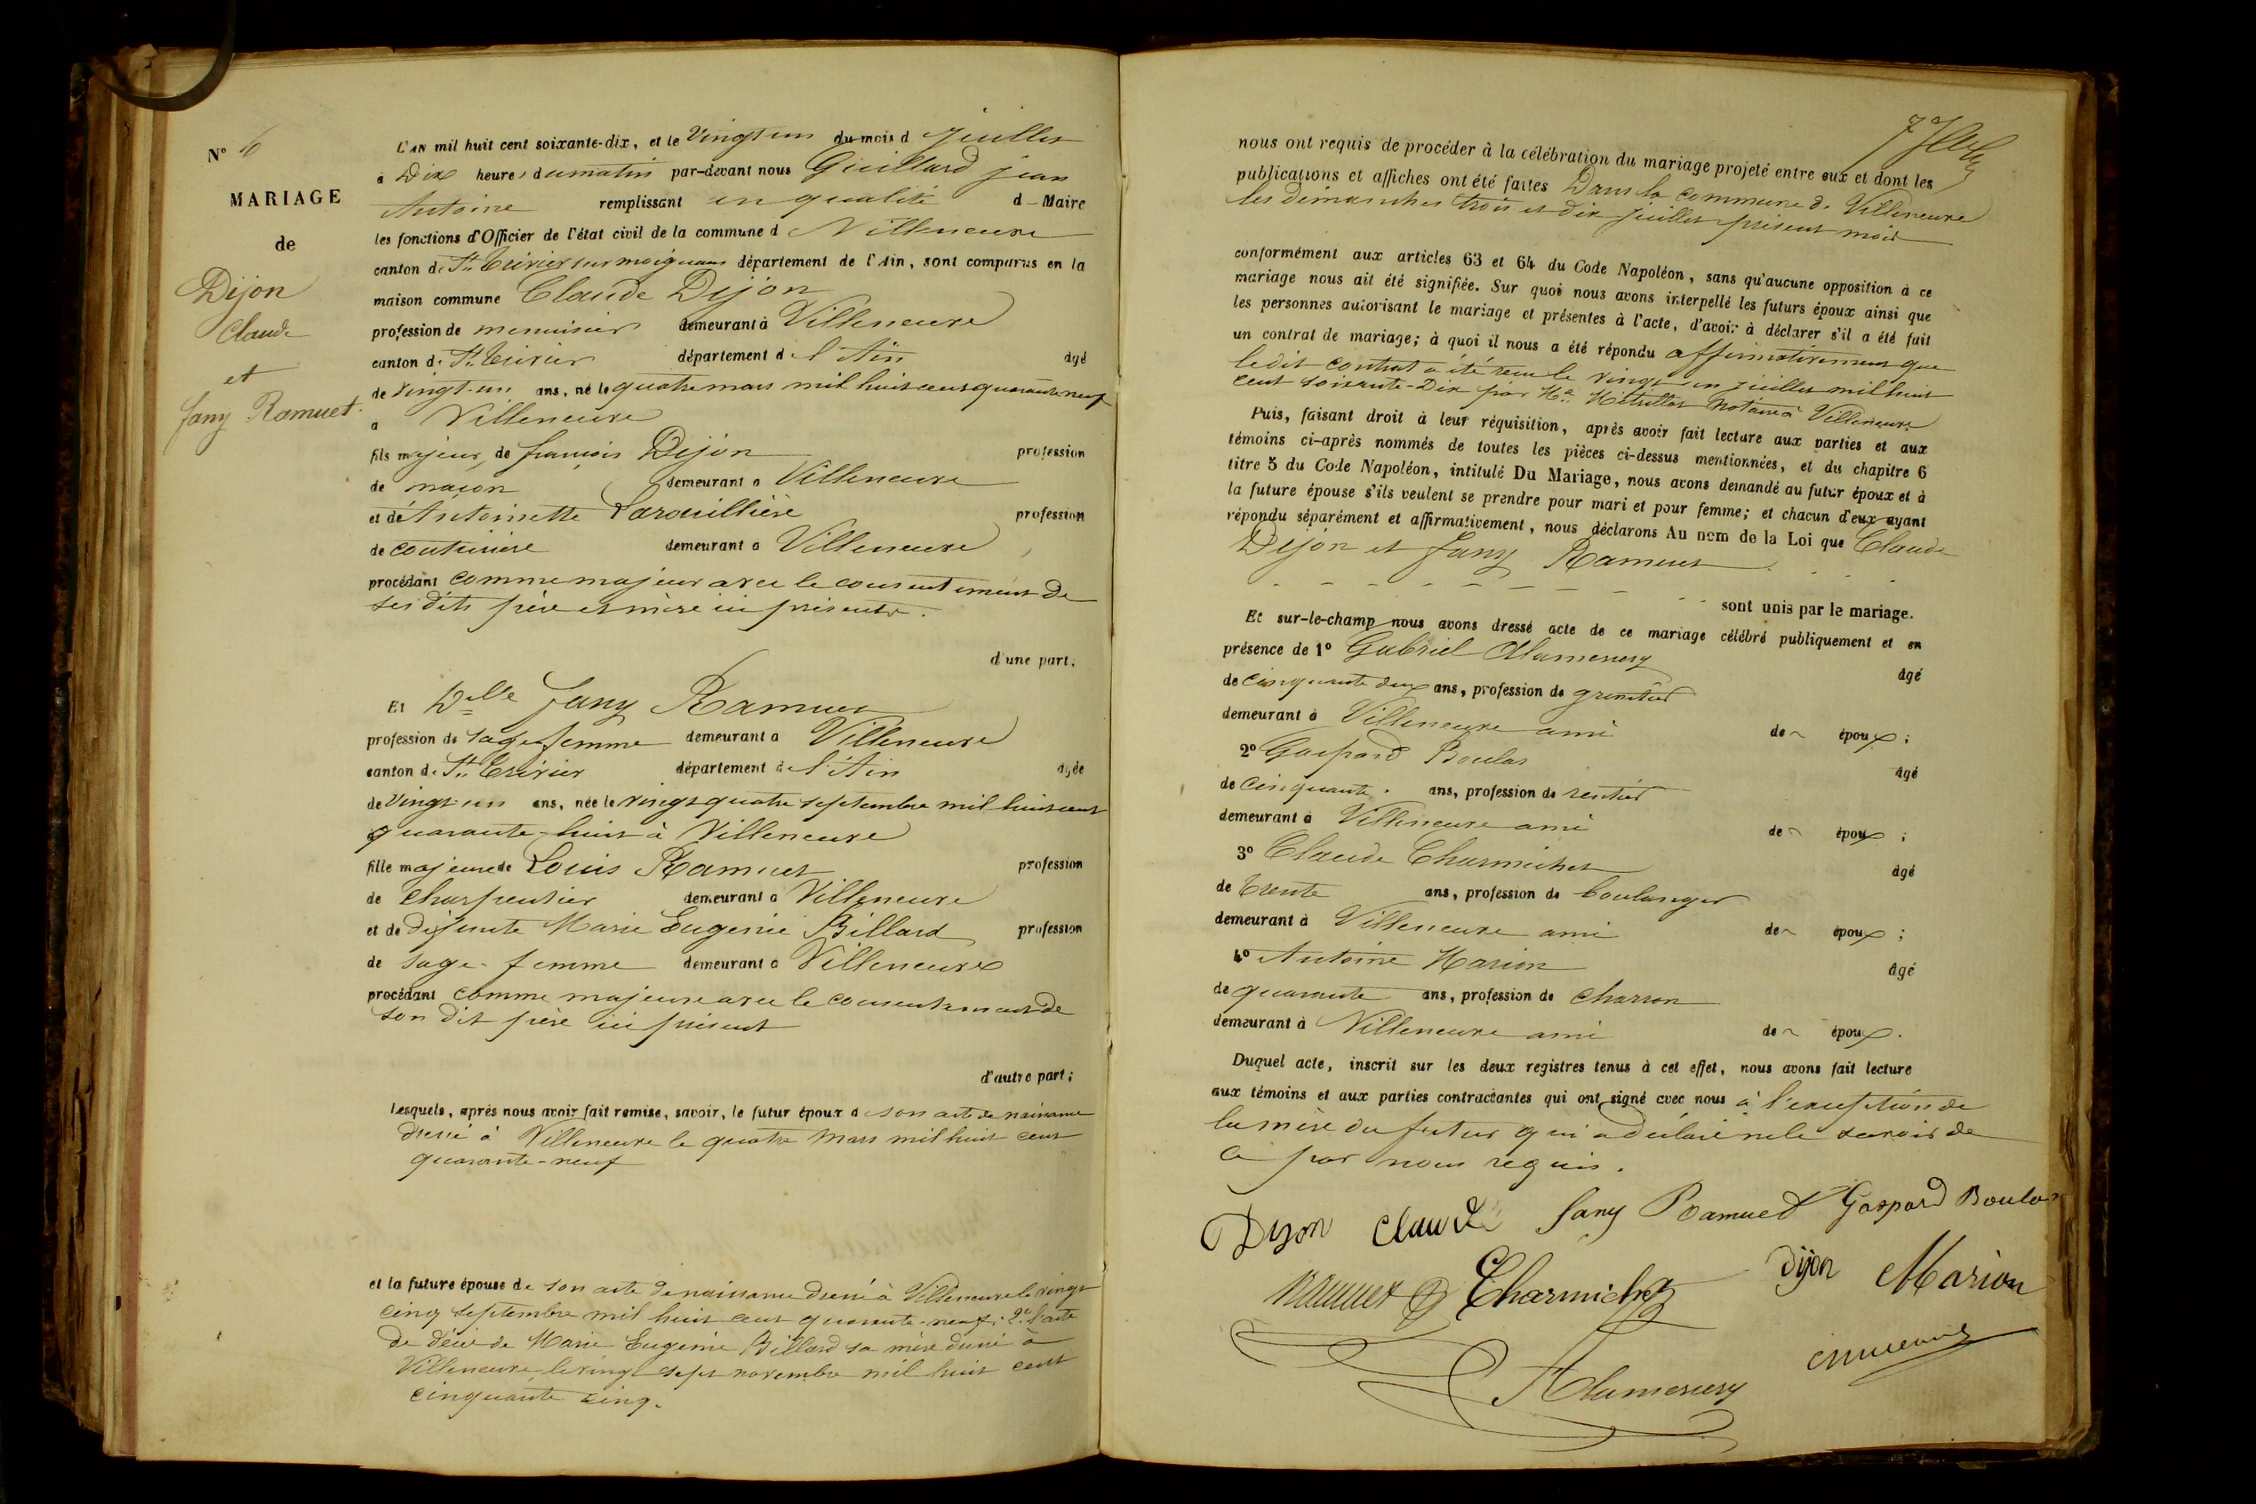 N° 6
MARIAGE
de
Dijon
Claude
et
fany Ramuet
L'AN mil huit cent soixante-dix, et le Vingt un du mois d juillet
à Dix heures du matin par-devant nous Guillard jean
Antoine remplissant en qualité d Maire
les fonctions d'Officier de l'état civil de la commune d Villeneuve
canton de St Trivier sur moignans département de l'Ain, sont comparus en la
maison commune Claude Dijon
profession de menuisier demeurant à Villeneuve
canton de St Trivier département de l'Ain âgé
de vingt-un ans, né le quatre mars mil huit cent quarante neuf
à Villeneuve
fils majeur de françois Dijon profession
de maçon demeurant à Villeneuve
et de Antoinette Larouillière profession
de couturière demeurant à Villeneuve
procédant comme majeur avec le consentement de
ses dits père et mère ici présents.
d'une part,
Et Dlle Fany Ramuet
profession de sage femme demeurant à Villeneuve
canton de St Trivier département de l'Ain âgée
de vingt-un ans, née le vingt quatre septembre mil huit cent
quarante-huit à Villeneuve
fille majeure de Louis Ramuet profession
de charpentier demeurant à Villeneuve
et de défunte Marie Eugénie Billard profession
de sage-femme demeurant à Villeneuve
procédant comme majeure avec le consentement de
son dit père ici présent
d'autre part;
Lesquels, après nous avoir fait remise, savoir, le futur époux de son acte de naissance
dressé à Villeneuve le quatre Mars mil huit cent
quarante-neuf
et la future épouse de son acte de naissance dressé à Villeneuve le vingt
cinq septembre mil huit cent quarante-neuf; 2° l'acte
de décès de Marie Eugénie Billard sa mère dressé à
Villeneuve, le vingt sept novembre mil huit cent
cinquante cinq.
nous ont requis de procéder à la célébration du mariage projeté entre eux et dont les
publications et affiches ont été faites Dans la commune de Villeneuve
les dimanches trois et dix juillet présent mois
conformément aux articles 63 et 64 du Code Napoléon, sans qu'aucune opposition à ce
mariage nous ait été signifiée. Sur quoi nous avons interpellé les futurs époux ainsi que
les personnes autorisant le mariage et présentes à l'acte, d'avoir à déclarer s'il a été fait
un contrat de mariage; à quoi il nous a été répondu affirmativement que
le dit contrat a été reçu le vingt un juillet mil huit
cent soixante-Dix par Me Métrillot Notaire à Villeneuve
Puis, faisant droit à leur réquisition, après avoir fait lecture aux parties et aux
témoins ci-après nommés de toutes les pièces ci-dessus mentionnées, et du chapitre 6
titre 5 du Code Napoléon, intitulé Du Mariage, nous avons demandé au futur époux et à
la future épouse s'ils veulent se prendre pour mari et pour femme; et chacun d'eux ayant
répondu séparément et affirmativement, nous déclarons Au nom de la Loi que Claude
Dijon et Fany Ramuet
sont unis par le mariage.
Et sur-le-champ nous avons dressé acte de ce mariage célébré publiquement et en
présence de 1° Gabriel Alamercery
âgé
de cinquante deux ans, profession de grenetier
demeurant à Villeneuve ami de époux;
2° Gaspard Boulas
âgé
de cinquante ans, profession de rentier
demeurant à Villeneuve ami de époux;
3° Claude Charmichet
âgé
de trente ans, profession de boulanger
demeurant à Villeneuve ami de époux;
4° Antoine Marion
âgé
de quarante ans, profession de charron
demeurant à Villeneuve ami de époux.
Duquel acte, inscrit sur les deux registres tenus à cet effet, nous avons fait lecture
aux témoins et aux parties contractantes qui ont signé avec nous à l'exception de
la mère du futur qui a déclaré ne le savoir de
ce par nous requis.
Dijon Claude fany Ramuet Gaspard Boulas
Ramuet Charmichet Dijon Marion
Alamercery